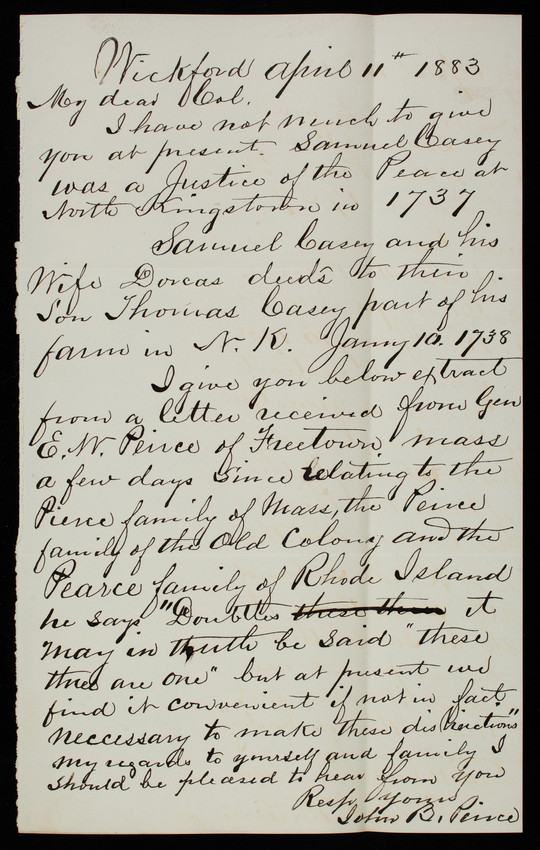 Wickford April 11th 1883
My dear Col.
I have not much to give
you at present. Samuel Casey
was a Justice of the Peace at
North Kingstown in 1737
Samuel Casey and his
Wife Dorcas deeds to their
Son Thomas Casey part of his
farm in N. K. Jany 10. 1738
I give you below extract
from a letter received from Gen
E. W. Peirce of Freetown mass
a few days since relating to the
Pierce family of Mass, the Peirce
family of the Old Colony and the
Pearce family of Rhode Island
he says "Doubtles these them it
may in truth be said "these
three are one" but at present we
find it convenient if not in fact
neccessary to make these distinctions"
my regards to yourself and family I
should be pleased to hear from you
Resp. yours
John B. Peirce